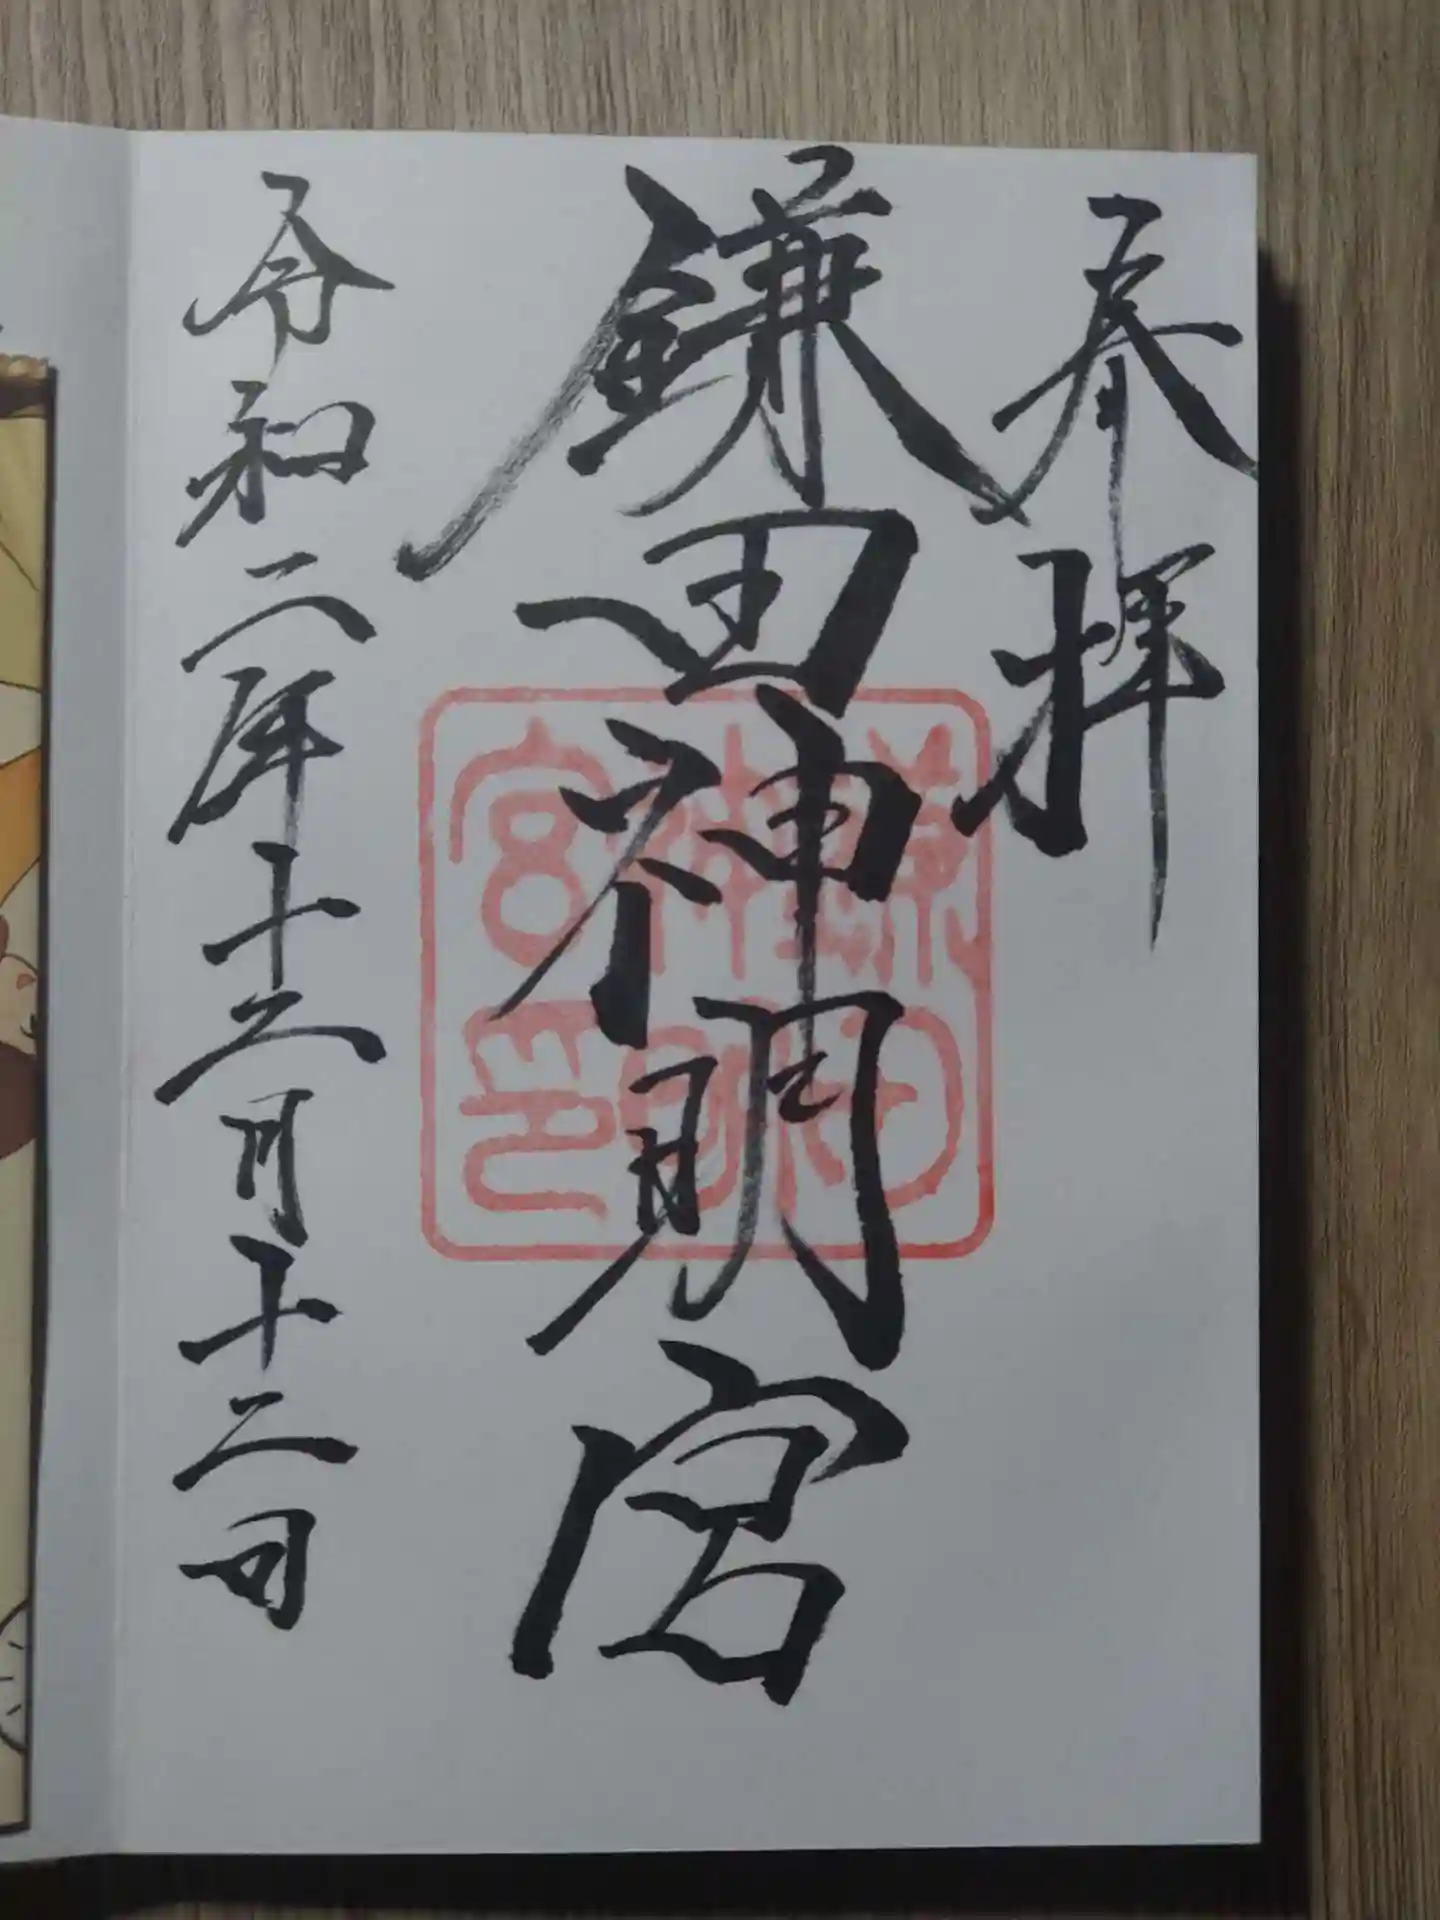 奉拝
鎌田神明宮
鎌田神明宮印
令和二年十二月十二日